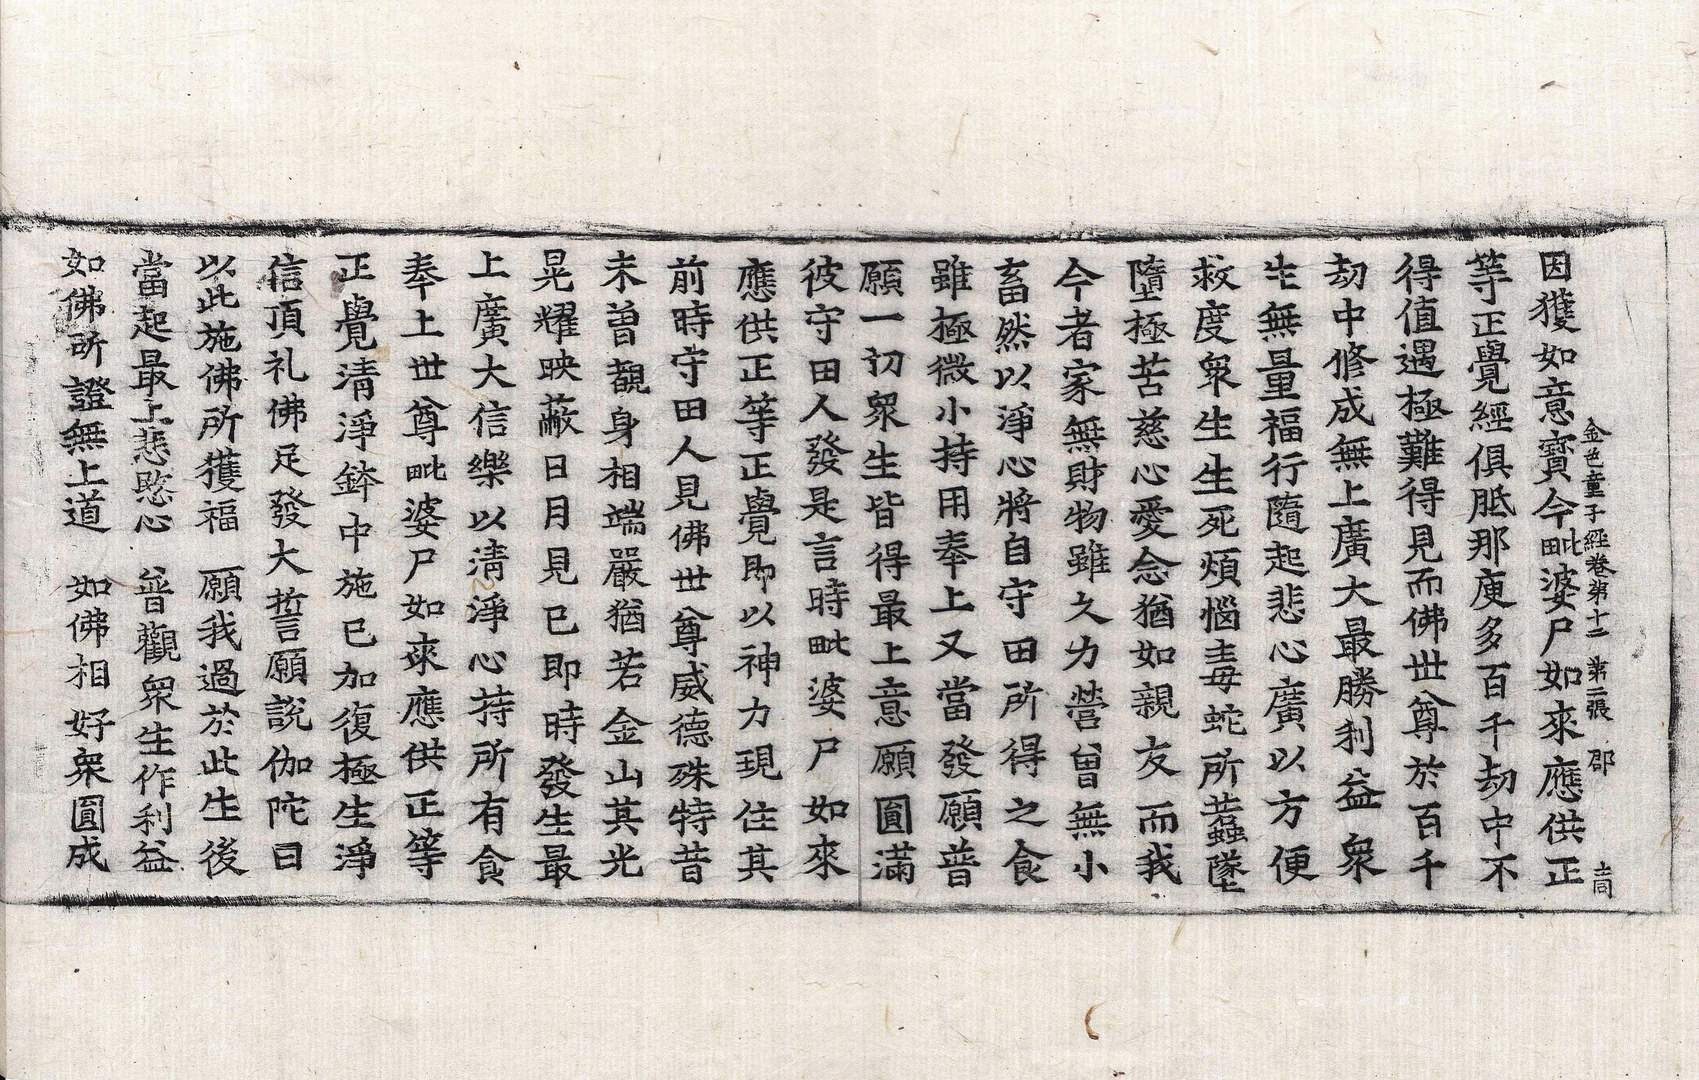 金色童子經卷第十二 第二張 郡
因獲如意寶今毗婆尸如來應供正
等正覺經俱胝那庾多百千劫中不
得值遇極難得見而佛世尊於百千
劫中修成無上廣大最勝利益衆
生無量福行隨起悲心廣以方便
救度衆生生死煩惱毒蛇所螫墜
墮極苦慈心愛念猶如親友而我
今者家無財物雖久力營曾無小
畜然以淨心將自守田所得之食
雖極微小持用奉上又當發願普
願一切衆生皆得最上意願圓滿
彼守田人發是言時毗婆尸如來
應供正等正覺即以神力現住其
前時守田人見佛世尊威德殊特昔
未曾覩身相端嚴猶若金山其光
晃耀映蔽日月見已即時發生最
上廣大信樂以清淨心持所有食
奉上世尊毗婆尸如來應供正等
正覺清淨鉢中施已加復極生淨
信頂礼佛足發大誓願說伽陀曰
以此施佛所獲福 願我過於此生後
當起最上悲愍心 普觀衆生作利益
如佛所證無上道 如佛相好衆圓成